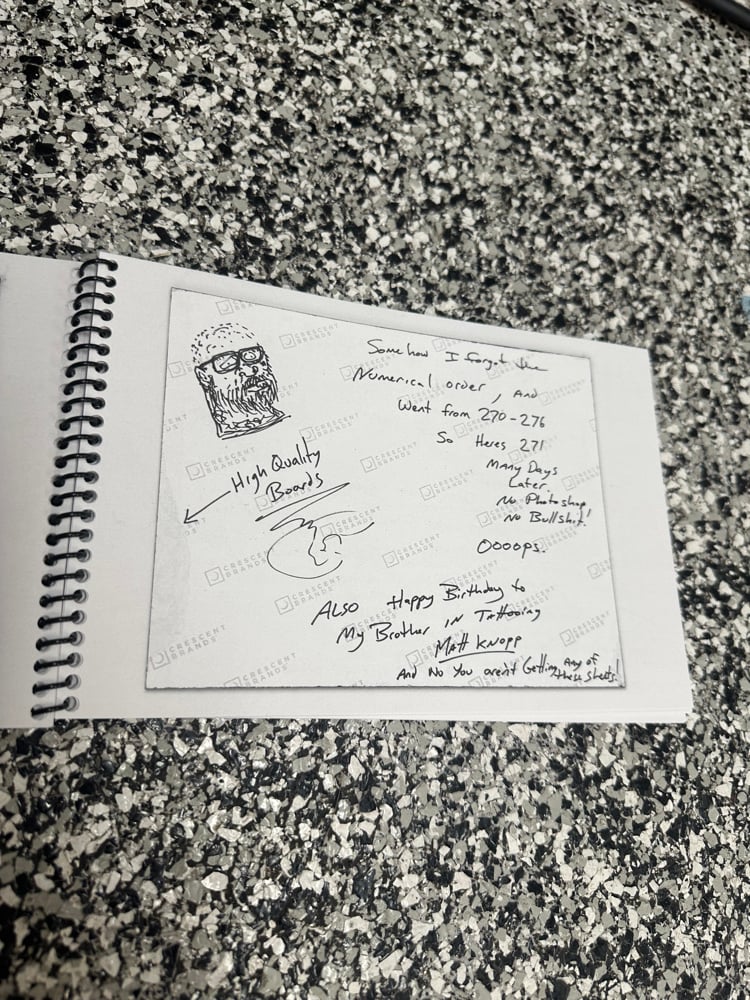 Somehow I forgot the
Numerical order, And
Went from 270-276
So Heres 271
Many Days
Later.
No Photoshop!
No Bullshit!
Oooops.
High Quality
Boards
Also Happy Birthday to
My Brother in Tattooing
Matt Knopp
And No You aren't Getting any of
these sheets!
CRESCENT
BRANDS